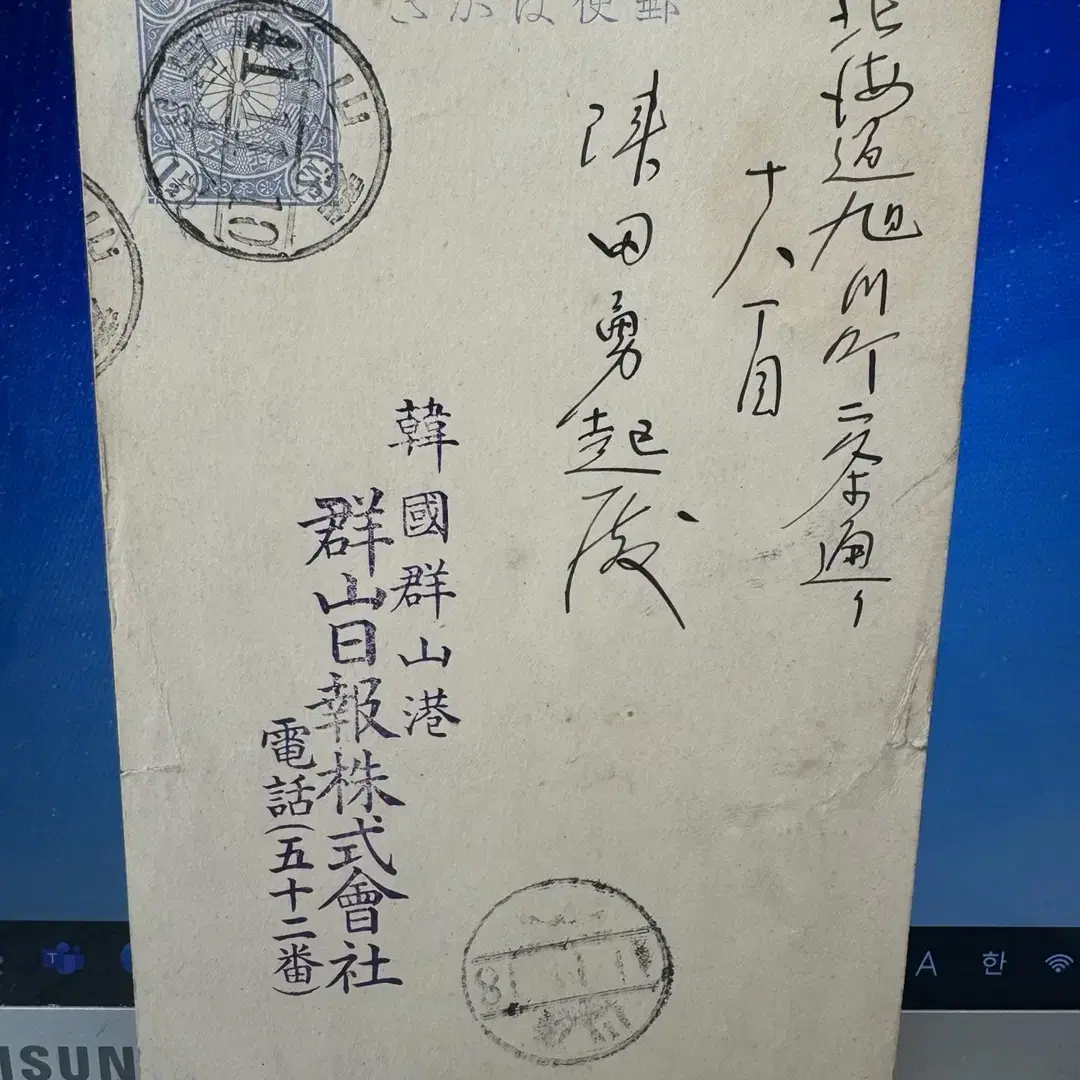 郵便はかき
北海道旭川町二条通り
十八丁目
田勇起殿
韓國群山港
群山日報株式會社
電話(五十二番)
1½
山
山
A 한
SUN